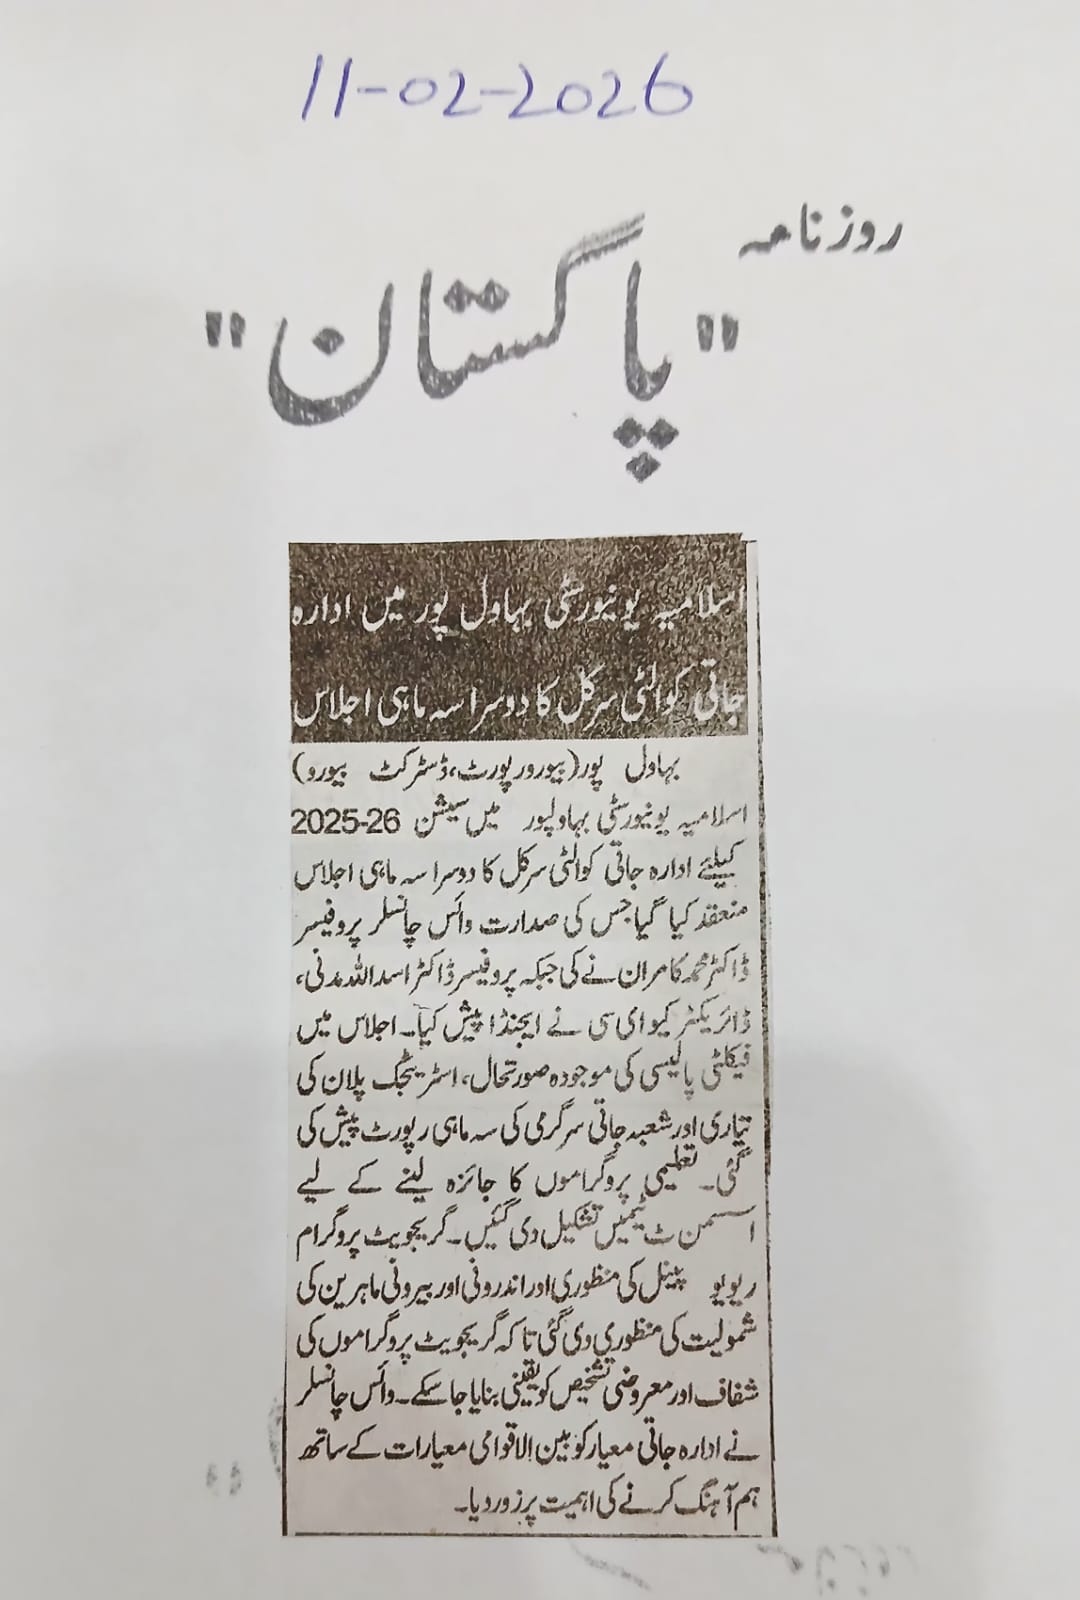 11-02-2026
روزنامہ
"پاکستان"
اسلامیہ یونیورسٹی بہاول پور میں ادارہ
جاتی کوالٹی سرکل کا دوسرا سہ ماہی اجلاس
بہاول پور(بیورورپورٹ،ڈسٹرکٹ بیورو)
اسلامیہ یونیورسٹی بہاولپور میں سیشن 2025-26
کیلئے ادارہ جاتی کوالٹی سرکل کا دوسرا سہ ماہی اجلاس
منعقد کیا گیا جس کی صدارت وائس چانسلر پروفیسر
ڈاکٹر محمد کامران نے کی جبکہ پروفیسر ڈاکٹر اسد اللہ مدنی،
ڈائریکٹر کیو ای سی نے ایجنڈا پیش کیا۔ اجلاس میں
فیکلٹی پالیسی کی موجودہ صورتحال، اسٹریٹجک پلان کی
تیاری اور شعبہ جاتی سرگرمی کی سہ ماہی رپورٹ پیش کی
گئی۔ تعلیمی پروگراموں کا جائزہ لینے کے لیے
اسسمن ٹ ٹیمیں تشکیل دی گئیں۔ گریجویٹ پروگرام
ریویو پینل کی منظوری اور اندرونی اور بیرونی ماہرین کی
شمولیت کی منظوری دی گئی تاکہ گریجویٹ پروگراموں کی
شفاف اور معروضی تشخیص کو یقینی بنایا جا سکے۔ وائس چانسلر
نے ادارہ جاتی معیار کو بین الاقوامی معیارات کے ساتھ
ہم آہنگ کرنے کی اہمیت پر زور دیا۔